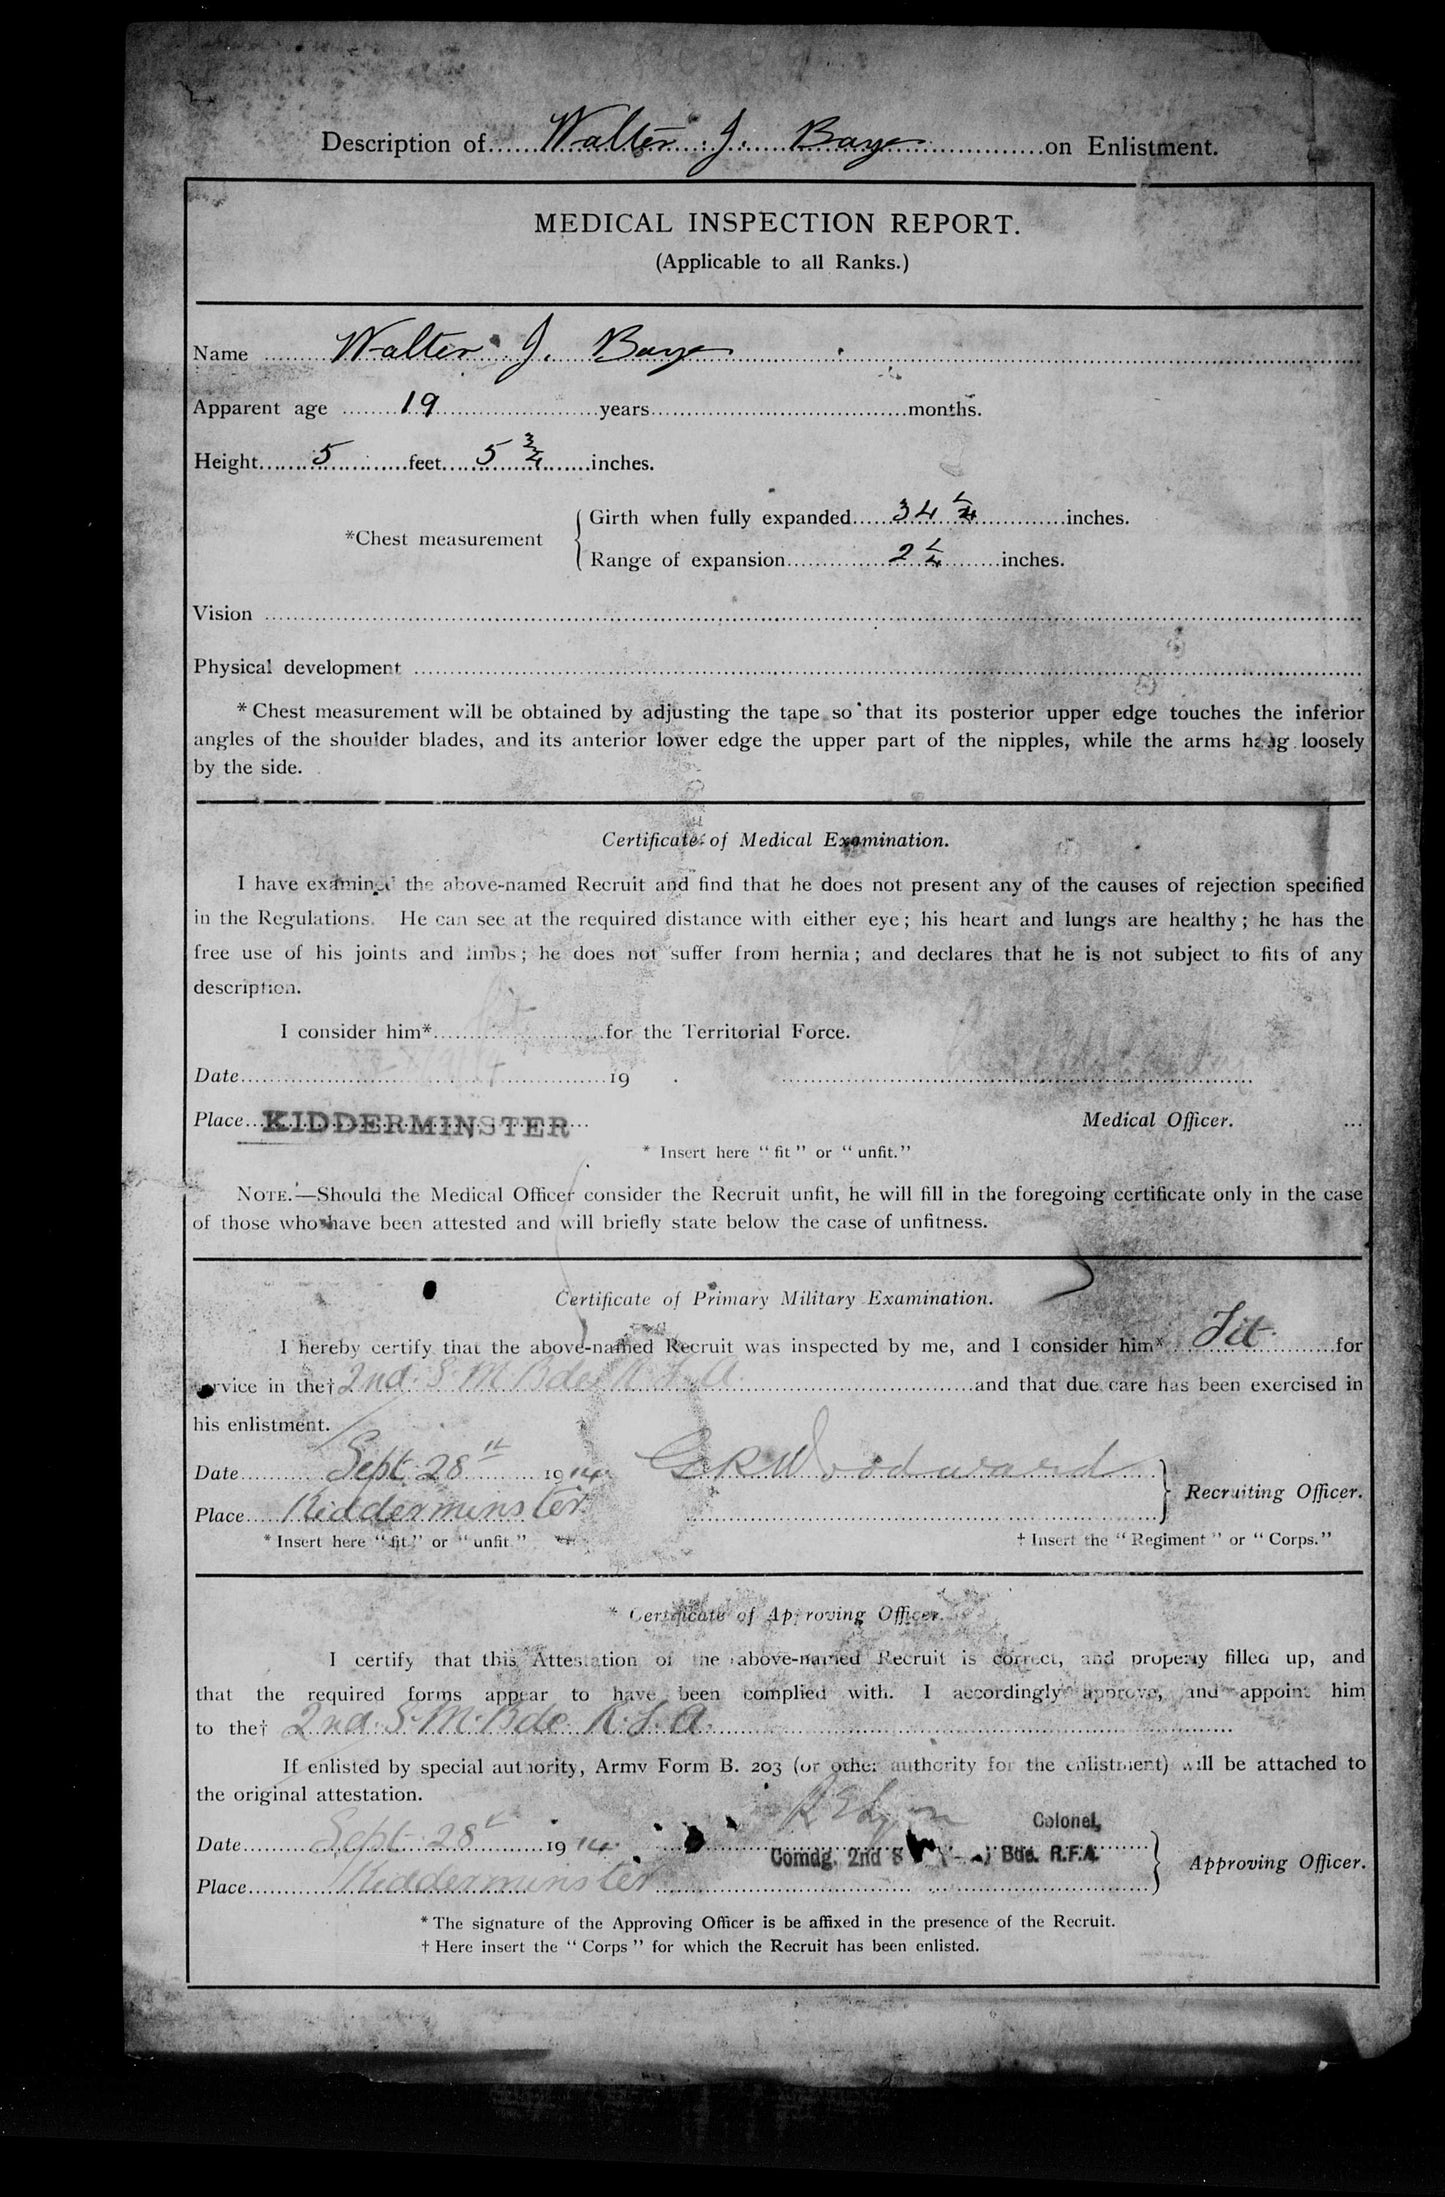 Description of Walter J. Baye on Enlistment.
MEDICAL INSPECTION REPORT.
(Applicable to all Ranks.)
Name Walter J. Baye
Apparent age 19 years months.
Height 5 feet 5 3/4 inches.
Girth when fully expanded 34 1/4 inches.
*Chest measurement
Range of expansion 2 1/4 inches.
Vision
Physical development
* Chest measurement will be obtained by adjusting the tape so that its posterior upper edge touches the inferior
angles of the shoulder blades, and its anterior lower edge the upper part of the nipples, while the arms hang loosely
by the side.
Certificate of Medical Examination.
I have examined the above-named Recruit and find that he does not present any of the causes of rejection specified
in the Regulations. He can see at the required distance with either eye; his heart and lungs are healthy; he has the
free use of his joints and limbs; he does not suffer from hernia; and declares that he is not subject to fits of any
description.
I consider him* fit for the Territorial Force.
Date 19
Place KIDDERMINSTER Medical Officer.
* Insert here "fit" or "unfit."
NOTE.—Should the Medical Officer consider the Recruit unfit, he will fill in the foregoing certificate only in the case
of those who have been attested and will briefly state below the case of unfitness.
Certificate of Primary Military Examination.
I hereby certify that the above-named Recruit was inspected by me, and I consider him* Fit for
service in the† 2nd. S. M. Bde R. F. A. and that due care has been exercised in
his enlistment.
Date Sept. 28th 1914 Woodward
Recruiting Officer.
Place Kidderminster
* Insert here "fit" or "unfit" † Insert the "Regiment" or "Corps."
* Certificate of Approving Officer.
I certify that this Attestation of the above-named Recruit is correct, and properly filled up, and
that the required forms appear to have been complied with. I accordingly approve, and appoint him
to the† 2nd. S. M. Bde. R. F. A.
If enlisted by special authority, Army Form B. 203 (or other authority for the enlistment) will be attached to
the original attestation.
Colonel,
Date Sept. 28th 1914
Comdg. 2nd S Bde. R.F.A.
Approving Officer.
Place Kidderminster
* The signature of the Approving Officer is be affixed in the presence of the Recruit.
† Here insert the "Corps" for which the Recruit has been enlisted.